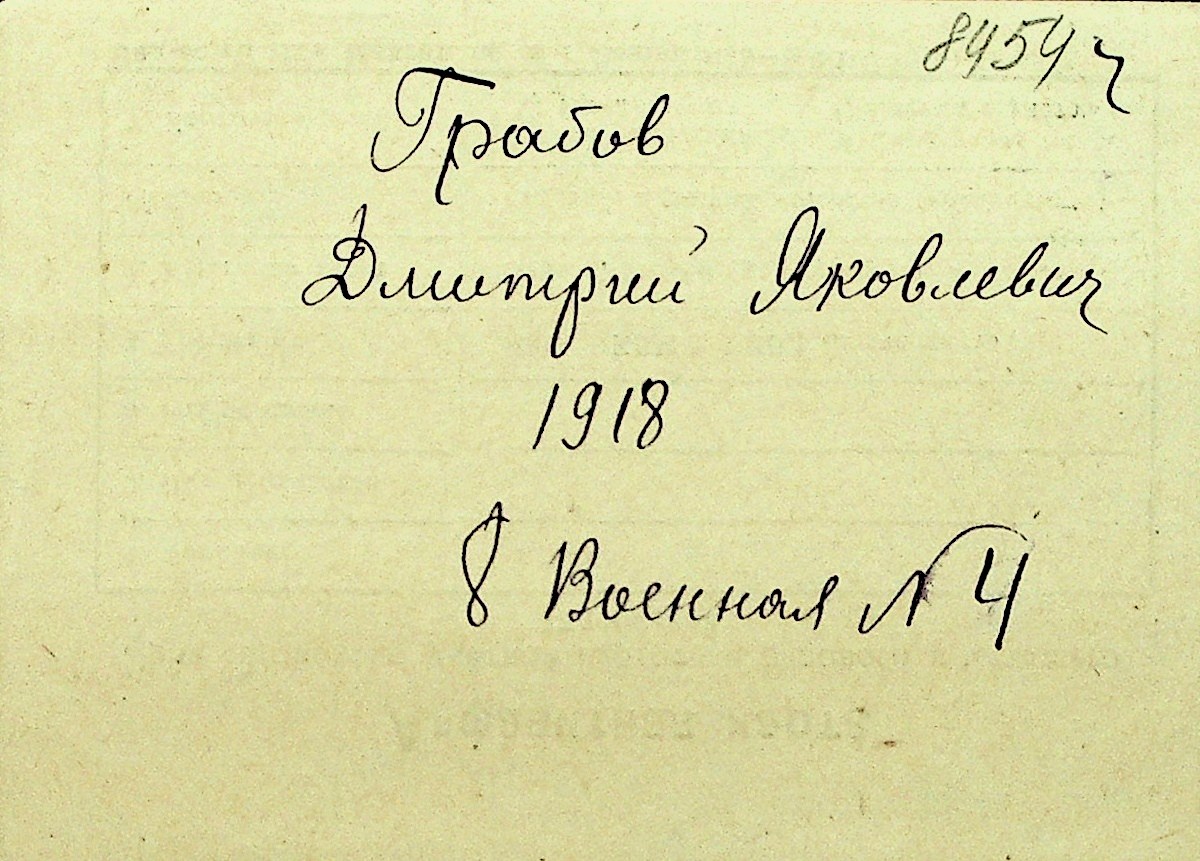 8454 ч
Грабов
Дмитрий Яковлевич
1918
8 Военная № 4